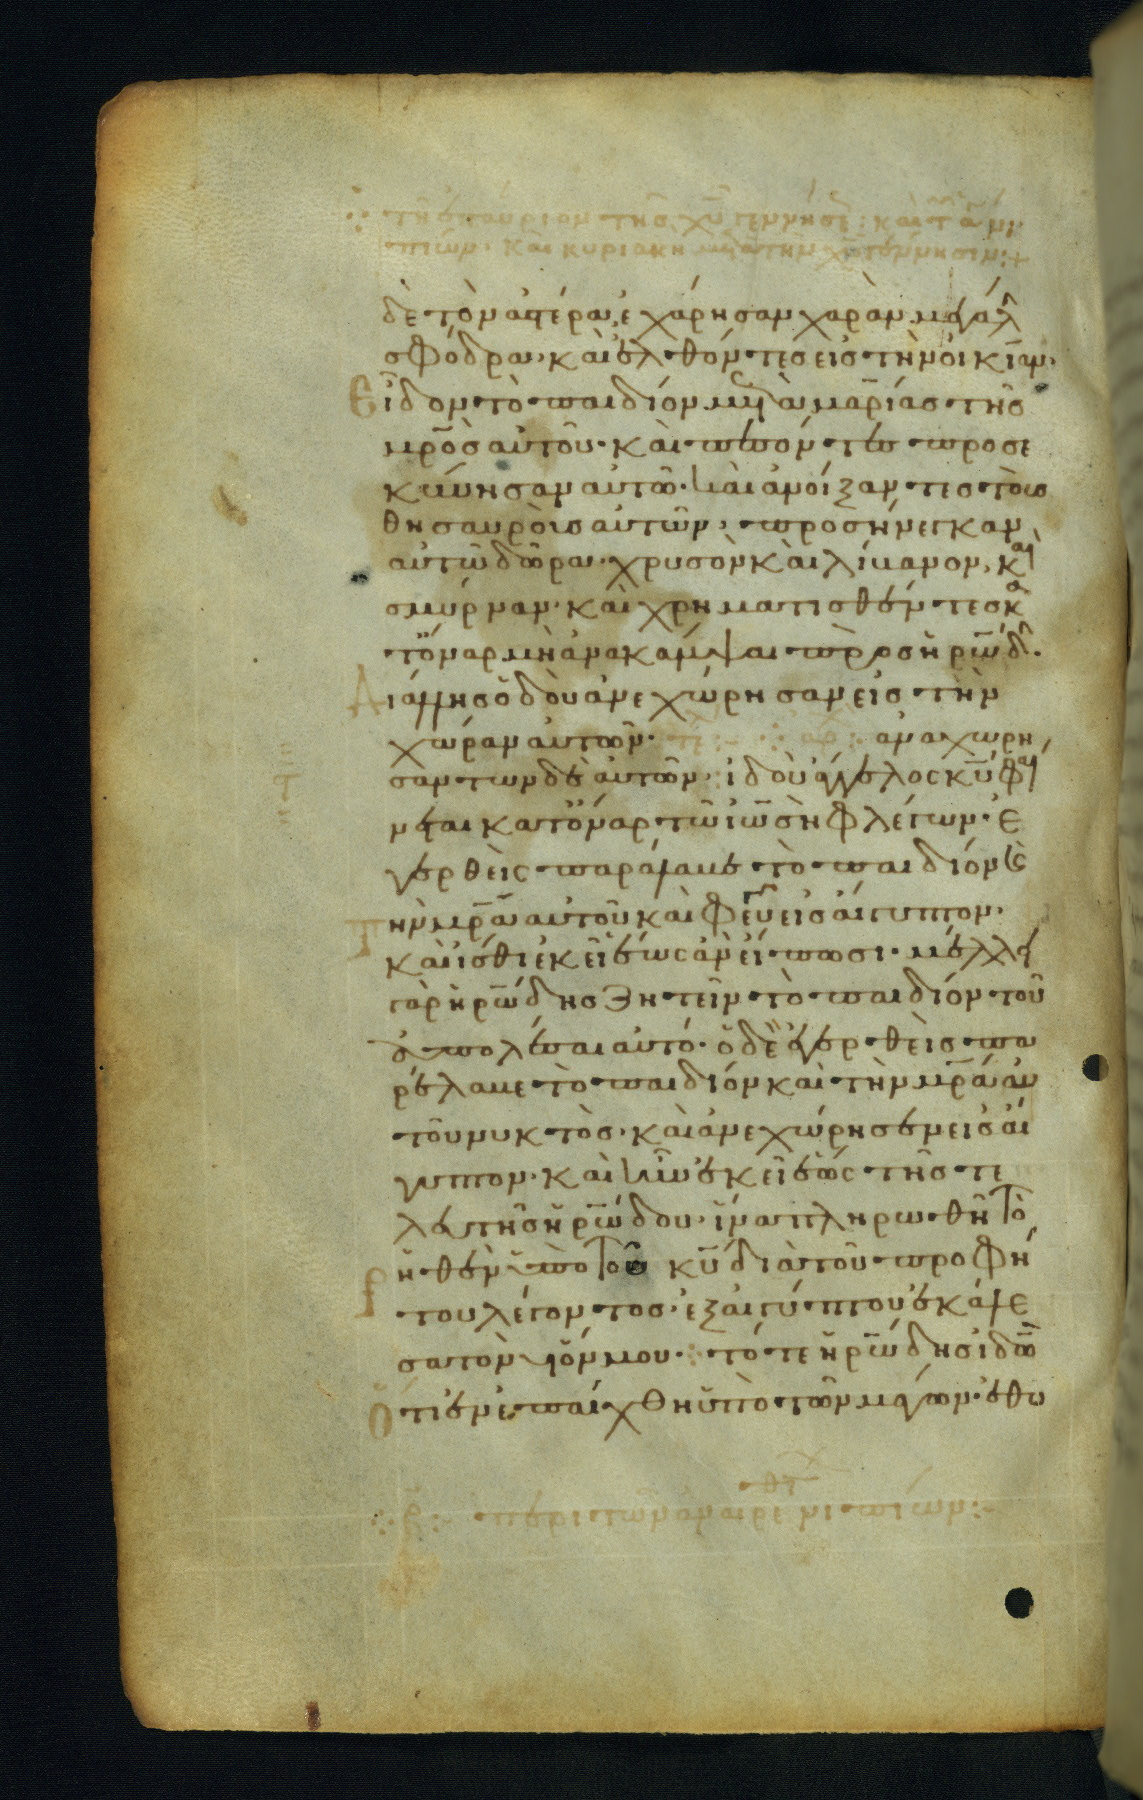 τῆ ἐπαύριον τῆς χῦ γεννήσε: καὶ τῶν νη
πίων. καὶ κυριακῆ μετὰ τὴν χῦ γέννησιν:+
δὲ τὸν ἀστέρα, ἐχάρησαν χαρὰν μεγάλ
σφόδρα· καὶ ἐλθόντες εἰς τὴν οἰκίαν.
εἶδον τὸ παιδίον μετὰ μαρίας τῆς
μρ̅ὸς αὐτοῦ. καὶ πεσόντες προσε
κύνησαν αὐτῶ. καὶ ἀνοίξαντες τοὺς
θησαυροὺς αὐτῶν, προσήνεγκαν
αὐτῶ δῶρα. χρυσὸν καὶ λίβανον, καὶ
σμύρναν. καὶ χρηματισθέντες κα
τόναρ μὴ ἀνακάμψαι πρὸς ἡρώδ.
δι ἄλλης ὁδοῦ ἀνεχώρησαν εἰς τὴν
χώραν αὐτῶν. ἀναχωρη
σάντων δὲ αὐτῶν. ἰδοὺ ἄγγελος κῦ φαί
νεται κατόναρ τῶ ἰωσὴφ λέγων. ἐ
γερθεὶς παράλαβε τὸ παιδίον καὶ
τὴν μρ̅α αὐτοῦ καὶ φεῦγε εἰς αἴγυπτον.
καὶ ἴσθι ἐκεῖ ἕως ἂν εἴπω σοι. μέλλει
γὰρ ἡρώδης ζητεῖν τὸ παιδίον τοῦ
ἀπολέσαι αὐτό. ὁ δὲ ἐγερθεὶς πα
ρέλαβε τὸ παιδίον καὶ τὴν μρ̅α αὐ
τοῦ νυκτὸς. καὶ ἀνεχώρησεν εἰς αἴ
γυπτον. καὶ ἦν ἐκεῖ ἕως τῆς τε
λευτῆς ἡρώδου. ἵνα πληρωθῆ τὸ
ῥηθὲν ὑπὸ τοῦ κῦ διὰ τοῦ προφή
του λέγοντος. ἐξ αἰγύπτου ἐκάλε
σα τὸν υἱόν μου. τότε ἡρώδης ἰδὼν
ὅτι ἐνεπαίχθη ὑπὸ τῶν μάγων. ἐθυ
περὶ τῶν ἀναιρεθτ νηπίων:-